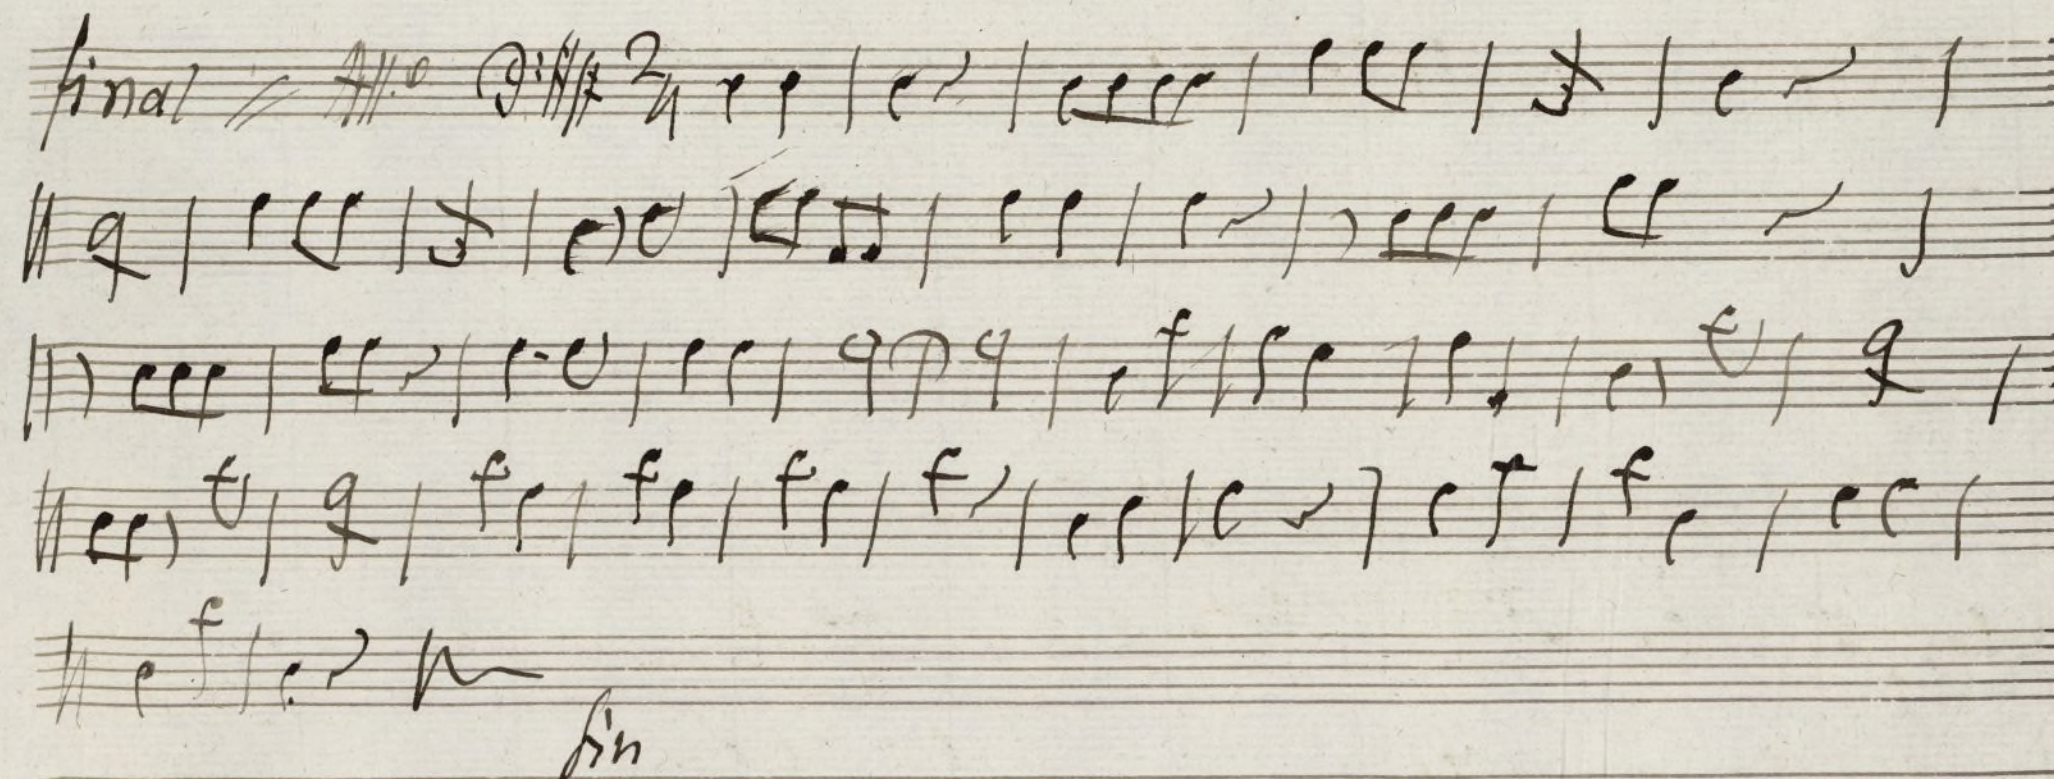 final = All.o 2/4
fin